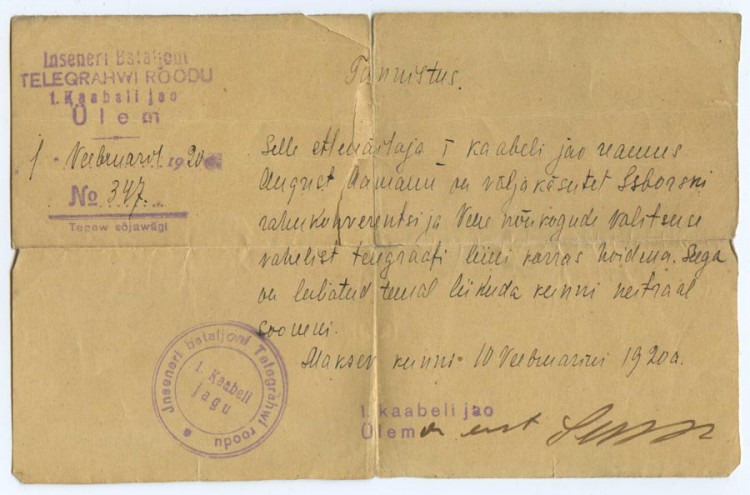 Inseneri Bataljoni
TELEGRAHWI ROODU
1. Kaabeli jao
Ülem
1 · Veebruaril 1920
No 347.
Tegew sõjawägi
Tunnistus.
Selle ettenäitaja I kaabeli jao reamees
August Aamann on väljakäsutet Isborski
rahukonverentsi ja Vene nõukogude valitsuse
vahelist telegraafi liini korras hoidma. Seega
on lubatud temal liikuda kunni neitraal
sooneni.
Maksev kunni 10 Veebruarini 1920 a.
1. kaabeli jao
Ülem
Jnseneri bataljoni Telegrahwi roodu
1. Kaabeli
jagu